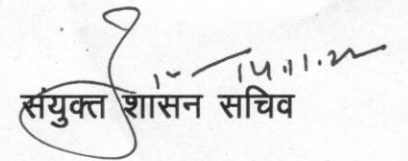 14.11.22
संयुक्त शासन सचिव